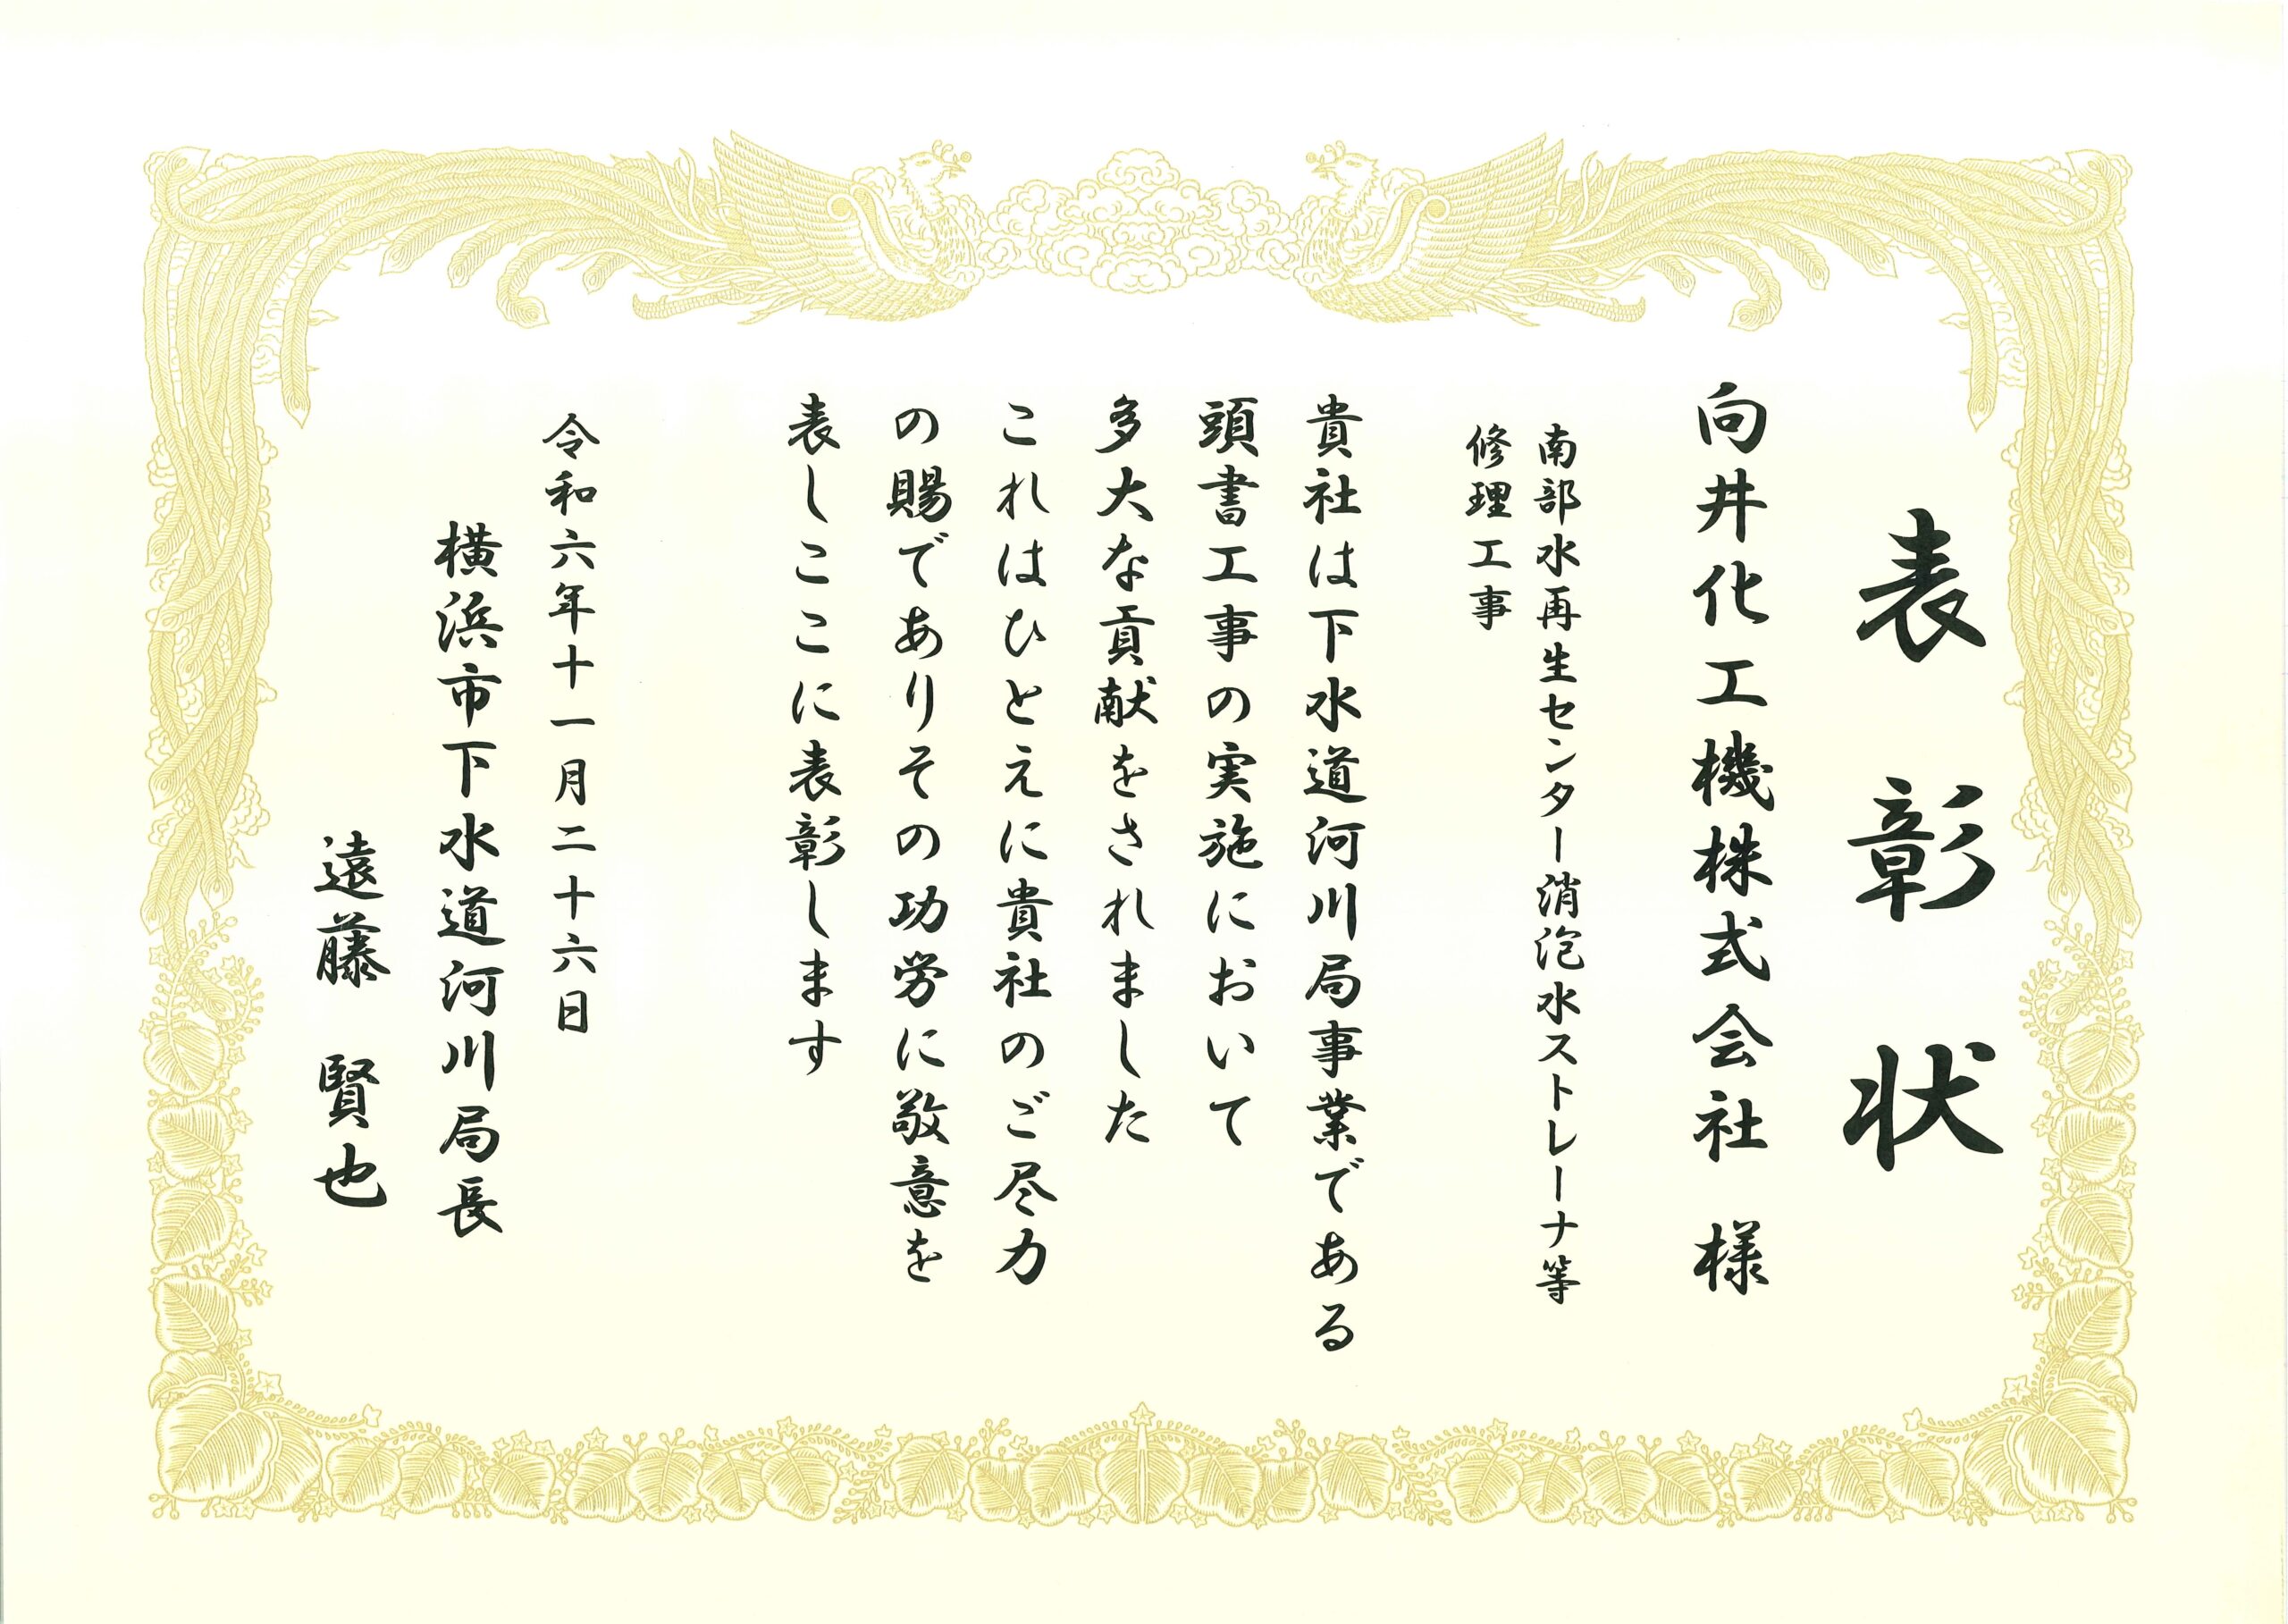 表彰状
向井化工機株式会社 様
南部水再生センター消泡水ストレーナ等
修理工事
貴社は下水道河川局事業である
頭書工事の実施において
多大な貢献をされました
これはひとえに貴社のご尽力
の賜でありその功労に敬意を
表しここに表彰します
令和六年十一月二十六日
横浜市下水道河川局長
遠藤 賢也